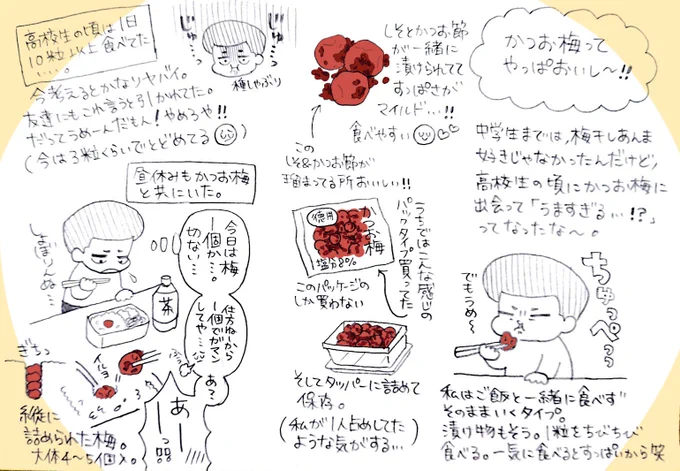 かつお梅って
やっぱおいし〜!!
中学生までは,梅干しあんま
好きじゃなかったんだけど,
高校生の頃にかつお梅に
出会って「うますぎる…!?」
ってなったな〜。
ちゅっぺっっ
でもうめ〜
私はご飯と一緒に食べず
そのままいくタイプ。
漬け物もそう。1粒をちびちび
食べる。一気に食べるとすっぱいから笑
しそとかつお節
が一緒に
漬けられてて
すっぱさが
マイルド…!!
食べやすい
この
しそ&かつお節が
溜まってる所おいしい!!
うちではこんな感じの
パックタイプ買ってた
徳用
かつお梅
塩分8%
このパッケージの
しか買わない
そしてタッパーに詰めて
保存。
(私が1人占めしてた
ような気がする…)
高校生の頃は1日
10粒以上食べてた
……。
種しゃぶり
今考えるとかなりヤバイ。
友達にもこれ言うと引かれてた。
だってうめーんだもん!やめろや!!
(今は3粒くらいでとどめてる)
昼休みもかつお梅
と共にいた。
しょぼりんぬ…
今日は梅
一個か…。
切ない…
茶
仕方ねいから
一個でガマン
してや…
あ?
あーーっ!!!
ぎちっ
縦に
詰められた梅。
大体4〜5個入。